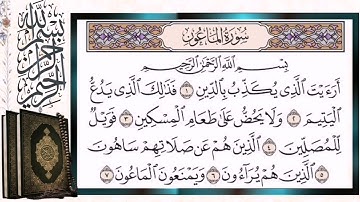 بسم الله الرحمن الرحيم
سُورَةُ الْمَاعُونِ
بِسْمِ اللَّهِ الرَّحْمَٰنِ الرَّحِيمِ
أَرَءَيْتَ الَّذِى يُكَذِّبُ بِالدِّينِ ١ فَذَٰلِكَ الَّذِى يَدُعُّ
الْيَتِيمَ ٢ وَلَا يَحُضُّ عَلَىٰ طَعَامِ الْمِسْكِينِ ٣ فَوَيْلٌ
لِّلْمُصَلِّينَ ٤ الَّذِينَ هُمْ عَن صَلَاتِهِمْ سَاهُونَ
٥ الَّذِينَ هُمْ يُرَآءُونَ ٦ وَيَمْنَعُونَ الْمَاعُونَ ٧